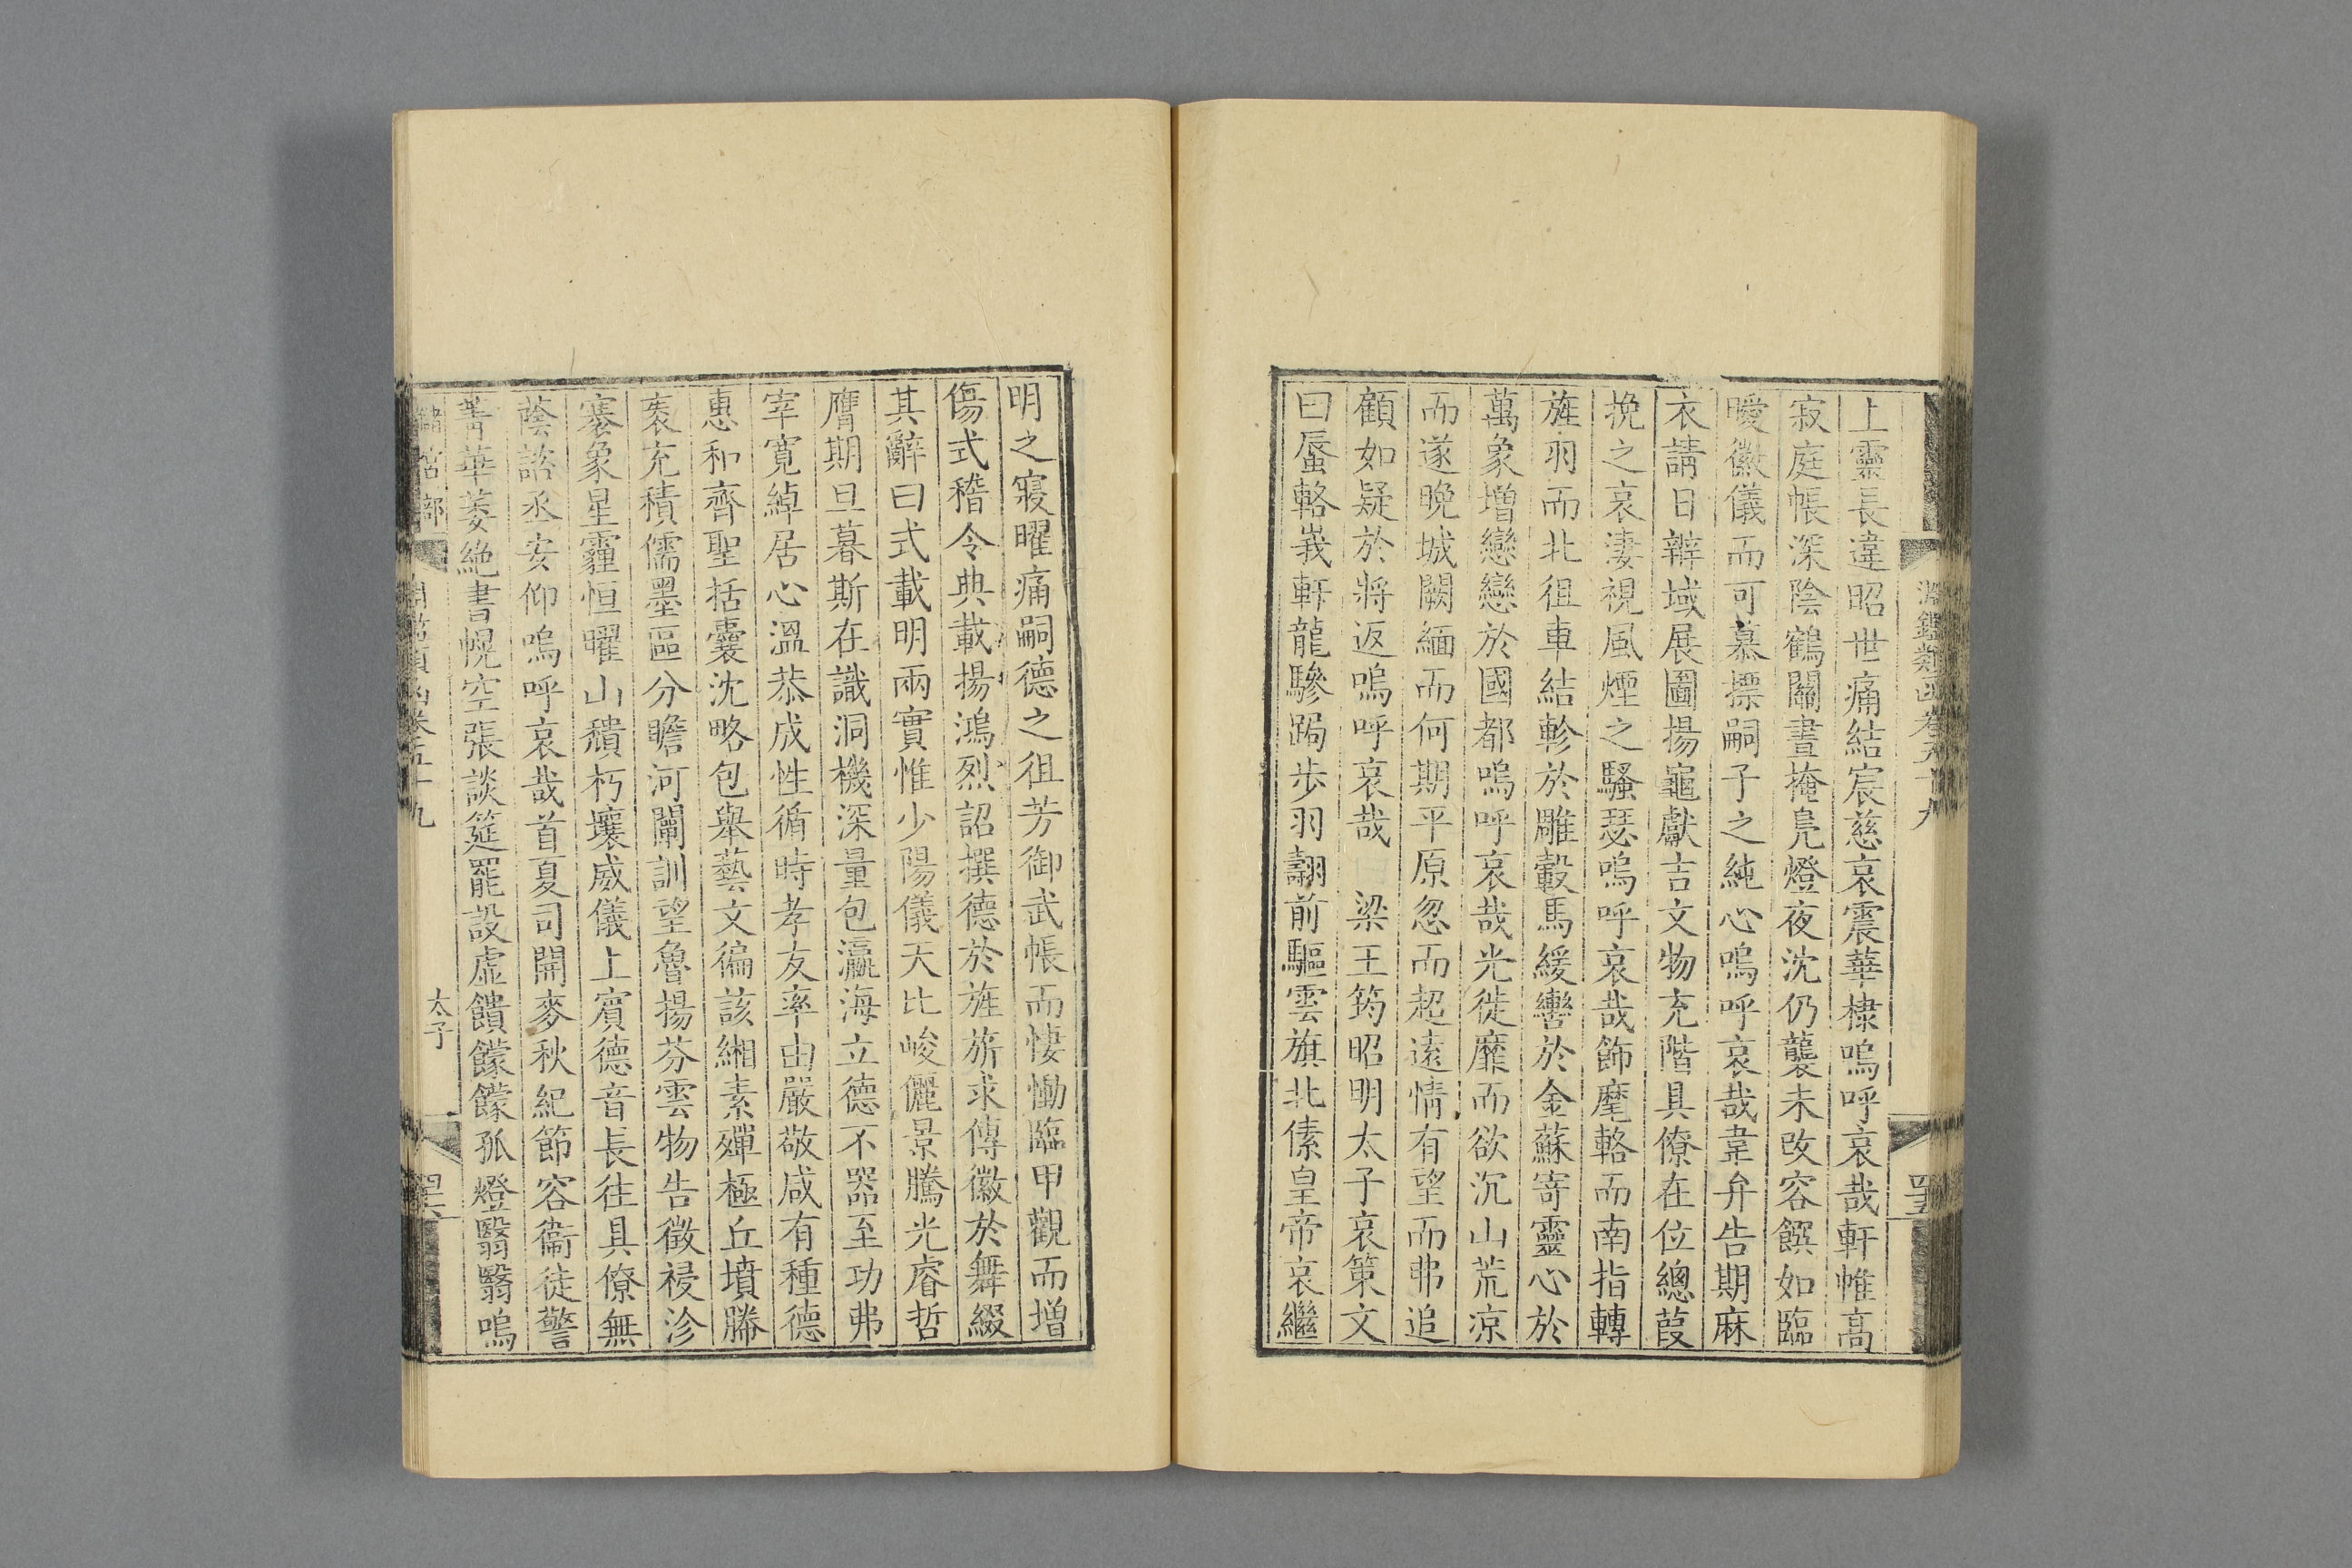 淵鑑類函卷五十九
上靈長違昭世痛結宸慈哀震華棣嗚呼哀哉軒帷高
寂庭帳深陰鶴關晝掩鳧燈夜沈仍襲未改容饌如臨
曖徽儀而可慕摽嗣子之純心嗚呼哀哉韋弁告期麻
衣請日辨域展圖揚龜獻吉文物充階具僚在位總葭
挽之哀淒視風煙之騷瑟嗚呼哀哉飾麾輅而南指轉
旌羽而北徂車結軫於雕轂馬緩轡於金蘇寄靈心於
萬象增戀戀於國都嗚呼哀哉光徙靡而欲沉山荒涼
而遂晚城闕緬而何期平原忽而超遠情有望而弗追
顧如疑於將返嗚呼哀哉 梁王筠昭明太子哀策文
曰蜃輅峩軒龍驂跼步羽翿前驅雲旗北傃皇帝哀繼
明之寢曜痛嗣德之徂芳御武帳而悽慟臨甲觀而增
傷式稽令典載揚鴻烈詔撰德於旌旂永傳徽於舞綴
其辭曰式載明兩實惟少陽儀天比峻儷景騰光睿哲
膺期旦暮斯在識洞機深量包瀛海立德不器至功弗
宰寬綽居心溫恭成性循時孝友率由嚴敬咸有種德
惠和齊聖括囊沈略包舉藝文徧該緗素殫極丘墳勝
袠充積儒墨區分瞻河闡訓望魯揚芬雲物告徵祲沴
褰象星霾恒曜山穨朽壤威儀上賓德音長往具僚無
蔭諮丞安仰嗚呼哀哉首夏司開麥秋紀節容衞徒警
菁華萎絶書幌空張談筵罷設虛饋饛饛孤燈翳翳嗚
太子